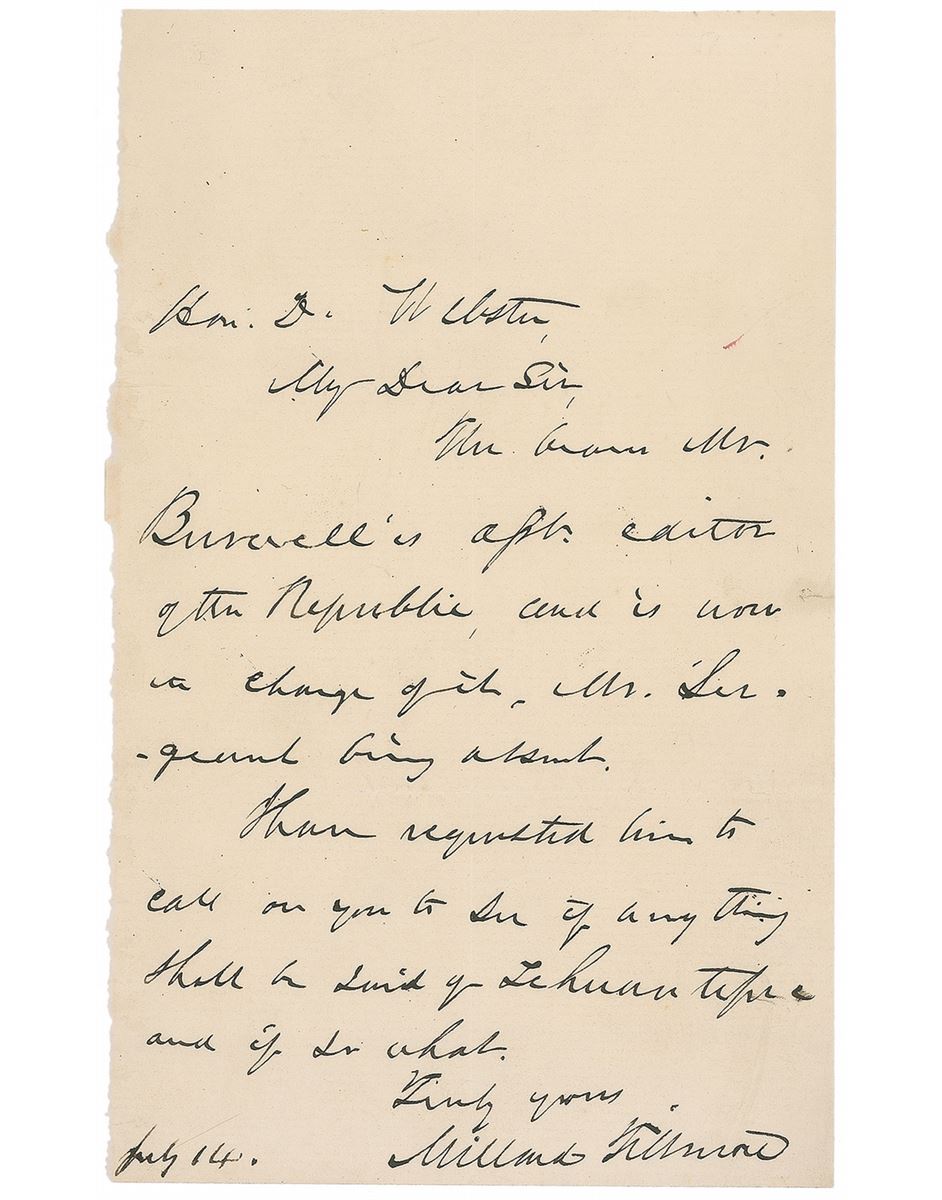 Hon. D. Webster,
My Dear Sir,
The bearer Mr.
Burwell is asst. editor
of the Republic, and is now
in charge of it, Mr. Ser-
-geant being absent.
I have requested him to
call on you to see if any thing
shall be said of Tehuantepec
and if so what.
Truly yours
Millard Fillmore
July 14.